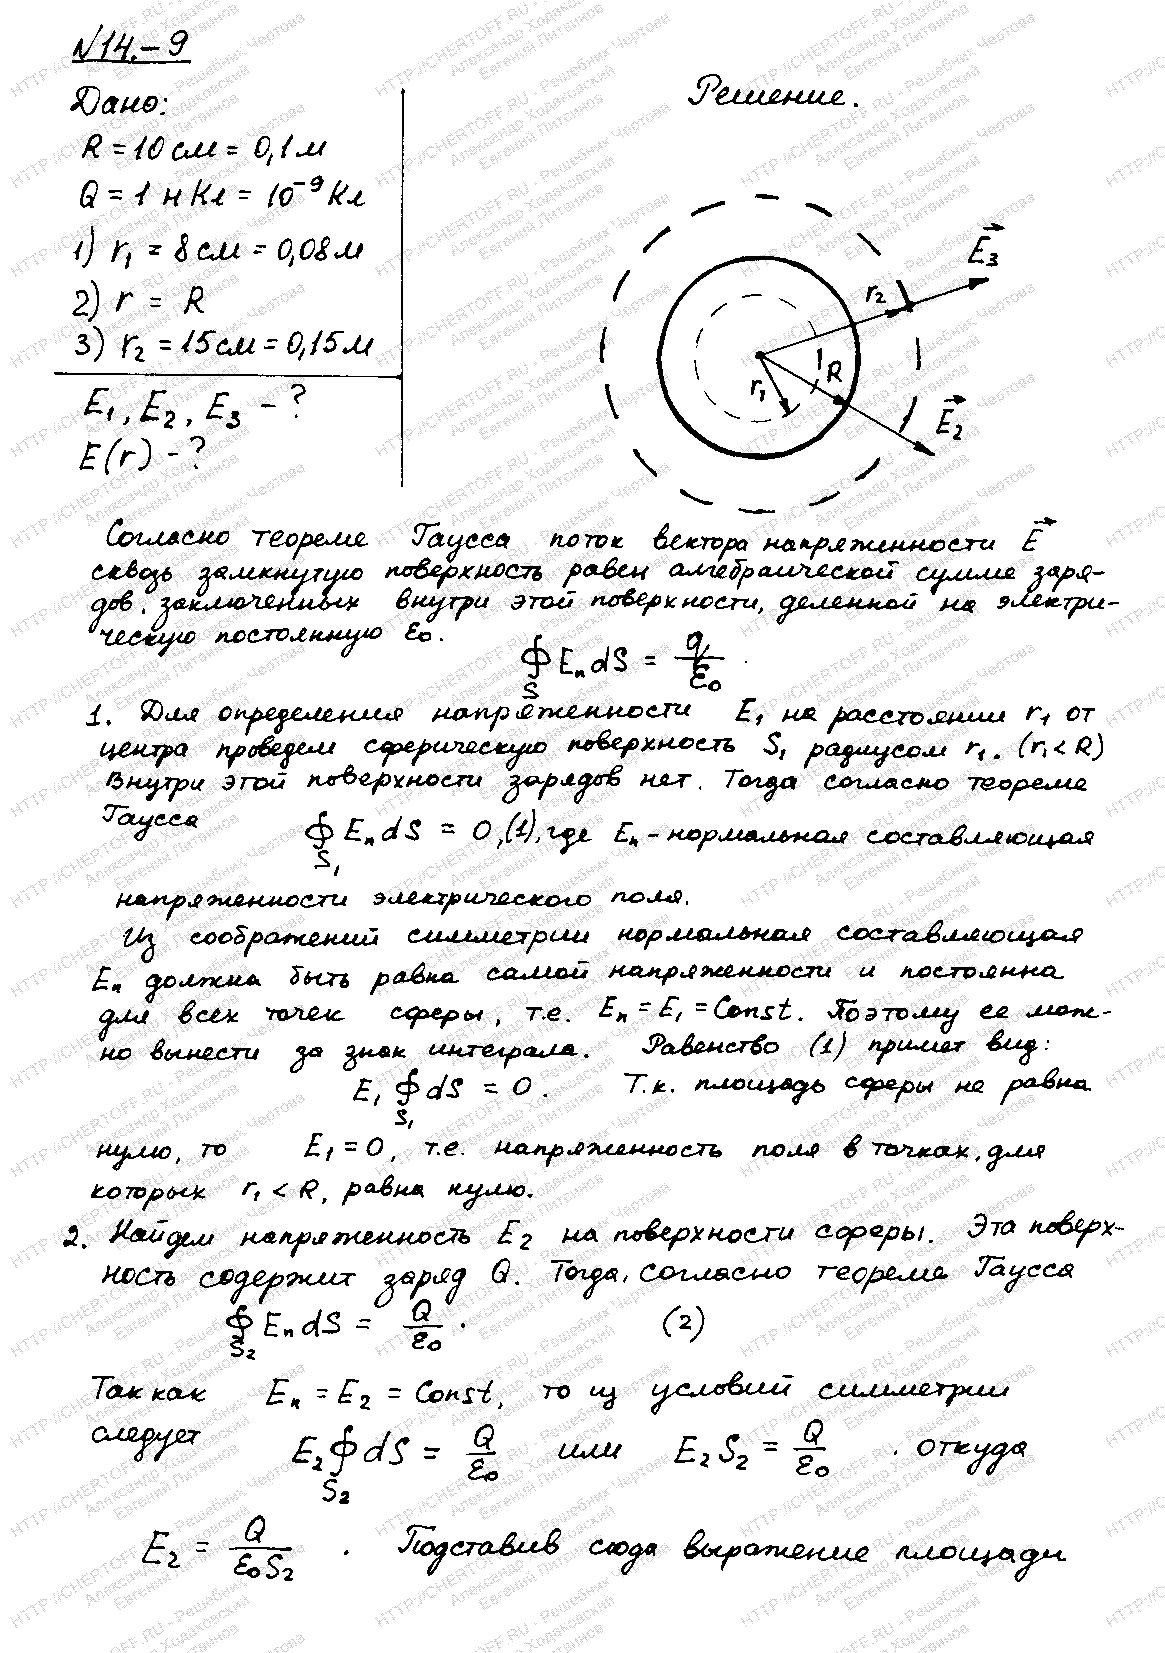 №14.-9
Дано:
R = 10 см = 0,1 м
Q = 1 нКл = 10⁻⁹ Кл
1) r₁ = 8 см = 0,08 м
2) r = R
3) r₂ = 15 см = 0,15 м
E₁, E₂, E₃ - ?
E(r) - ?
Решение.
E₃
r₂
r₁
R
E₂
Согласно теореме Гаусса поток вектора напряженности E
сквозь замкнутую поверхность равен алгебраической сумме заря-
дов, заключенных внутри этой поверхности, деленной на электри-
ческую постоянную ε₀.
∮ EₙdS = q/ε₀
S
1. Для определения напряженности E₁ на расстоянии r₁ от
центра проведем сферическую поверхность S₁ радиусом r₁. (r₁<R)
Внутри этой поверхности зарядов нет. Тогда согласно теореме
Гаусса ∮ EₙdS = 0, (1), где Eₙ - нормальная составляющая
S₁
напряженности электрического поля.
Из соображений симметрии нормальная составляющая
Eₙ должна быть равна самой напряженности и постоянна
для всех точек сферы, т.е. Eₙ = E₁ = Const. Поэтому ее мож-
но вынести за знак интеграла. Равенство (1) примет вид:
E₁ ∮ dS = 0. Т.к. площадь сферы не равна
S₁
нулю, то E₁ = 0, т.е. напряженность поля в точках, для
которых r₁ < R, равна нулю.
2. Найдем напряженность E₂ на поверхности сферы. Эта поверх-
ность содержит заряд Q. Тогда, согласно теореме Гаусса
∮ EₙdS = Q/ε₀. (2)
S₂
Так как Eₙ = E₂ = Const, то из условий симметрии
следует E₂ ∮ dS = Q/ε₀ или E₂S₂ = Q/ε₀. откуда
S₂
E₂ = Q/ε₀S₂. Подставив сюда выражение площади
HTTP://CHERTOFF.RU - Решебник Чертова
Александр Ходаковский
Евгений Литвинов